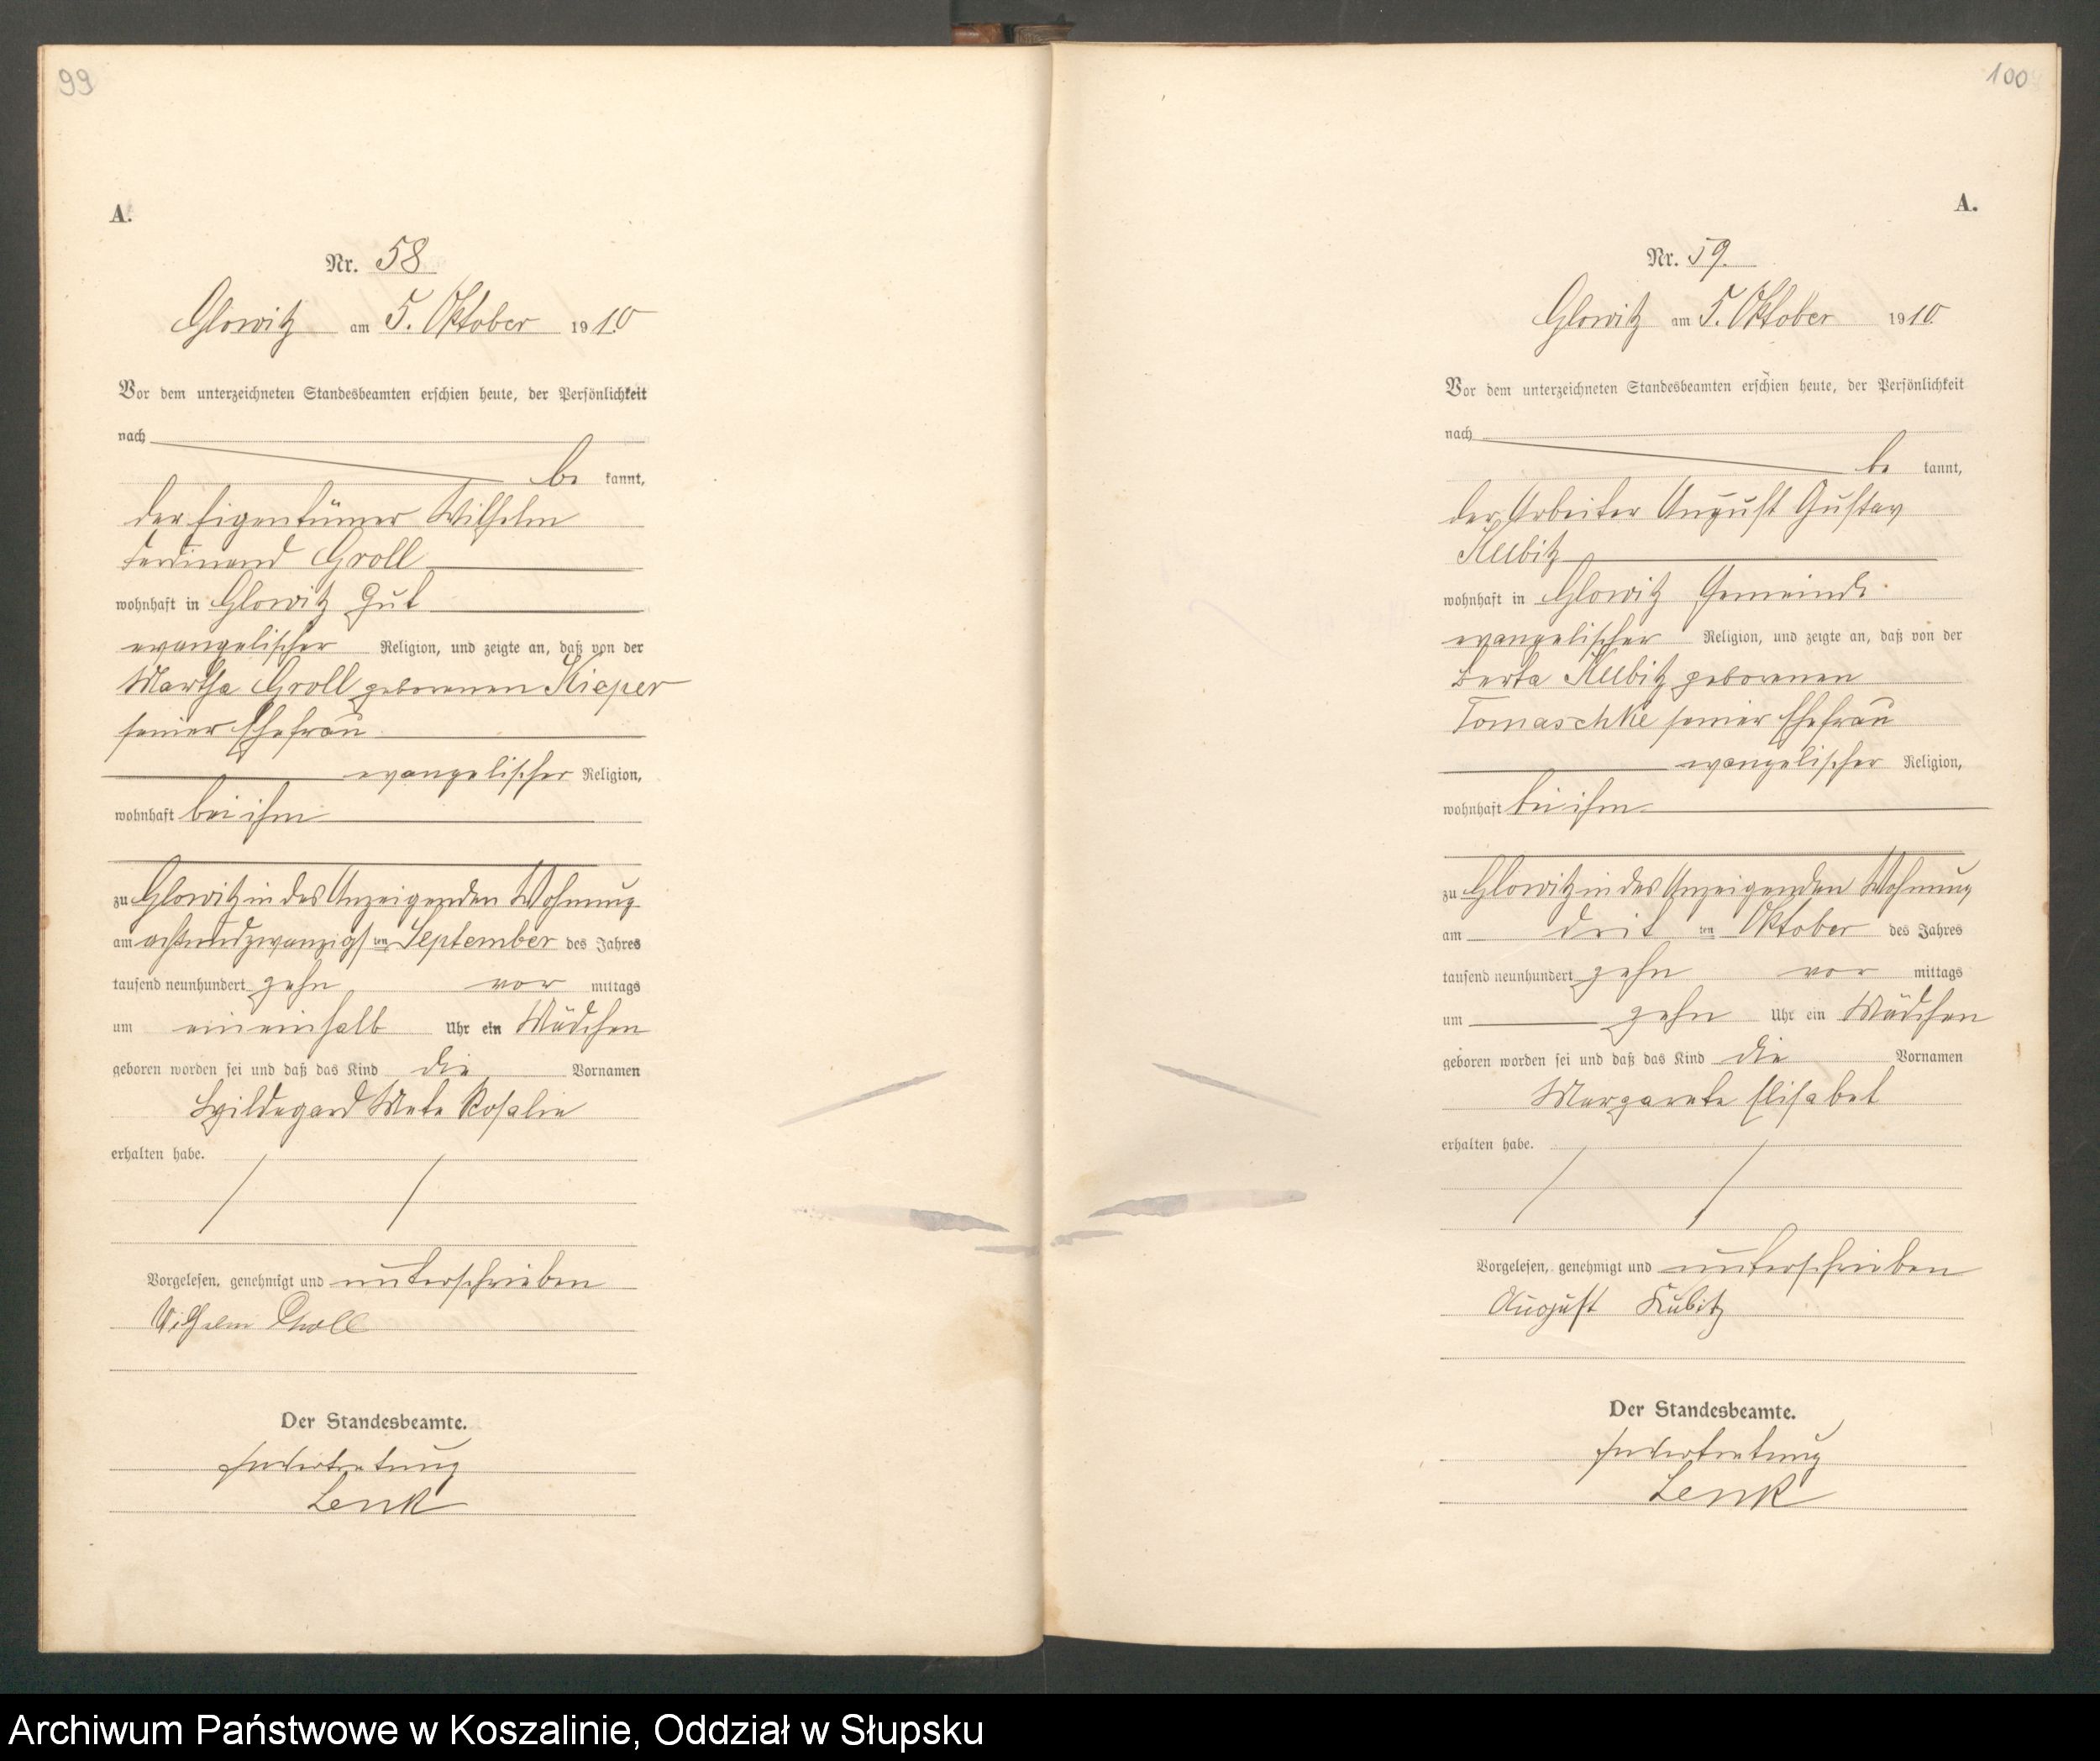 99
A.
Nr. 58
Glowitz am 5. Oktober 1910
Vor dem unterzeichneten Standesbeamten erschien heute, der Persönlichkeit
nach
be kannt,
der Eigentümer Wilhelm
Ferdinand Groll
wohnhaft in Glowitz Gut
evangelischer Religion, und zeigte an, daß von der
Martha Groll geborenen Kieper
seiner Ehefrau
evangelischer Religion,
wohnhaft bei ihm
zu Glowitz in des Anzeigenden Wohnung
am achtundzwanzigsten September des Jahres
tausend neunhundert zehn vor mittags
um ein einhalb Uhr ein Mädchen
geboren worden sei und daß das Kind die Vornamen
Hildegard Meta Rosalie
erhalten habe.
Vorgelesen, genehmigt und unterschrieben
Wilhelm Groll
Der Standesbeamte.
In Vertretung
Lenk
100
A.
Nr. 59.
Glowitz am 5. Oktober 1910.
Vor dem unterzeichneten Standesbeamten erschien heute, der Persönlichkeit
nach
be kannt,
der Arbeiter August Gustav
Kubitz
wohnhaft in Glowitz Gemeinde
evangelischer Religion, und zeigte an, daß von der
Berta Kubitz geborenen
Tomaschke seiner Ehefrau
evangelischer Religion,
wohnhaft bei ihm
zu Glowitz in des Anzeigenden Wohnung
am drit ten Oktober des Jahres
tausend neunhundert zehn vor mittags
um zehn Uhr ein Mädchen
geboren worden sei und daß das Kind die Vornamen
Margarete Elisabet
erhalten habe.
Vorgelesen, genehmigt und unterschrieben
August Kubitz
Der Standesbeamte.
In Vertretung
Lenk
Archiwum Państwowe w Koszalinie, Oddział w Słupsku